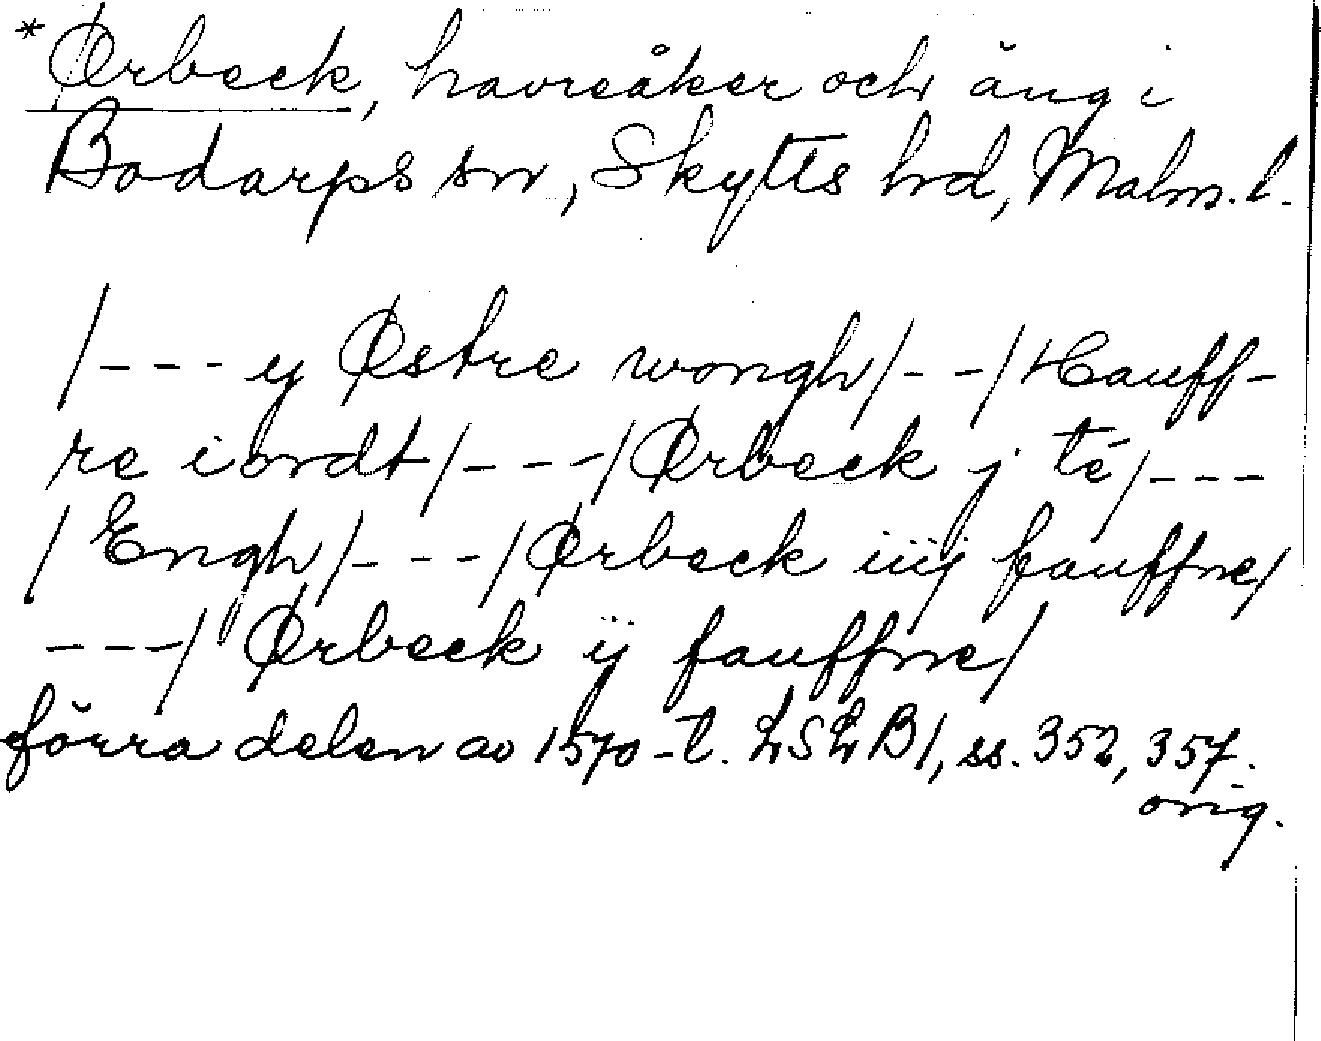 *Ørbeck, havreåker och äng i
Bodarps sn, Skytts hd, Malm. l.
/--- y Østre wongh/--/Hauff-
re iordt/---/Ørbeck j té/---
/Engh/---/Ørbeck iiij fauffne/
---/Ørbeck ij fauffne/
förra delen av 1570-t. LSLB1, ss. 352, 357.
orig.